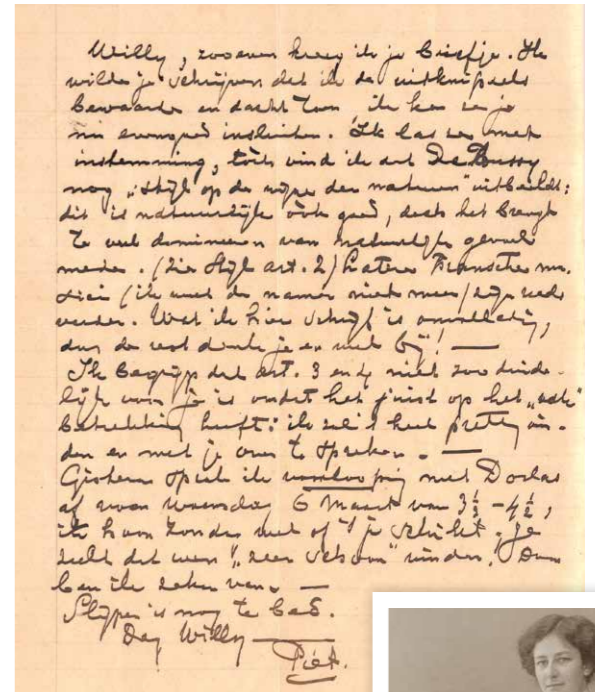 Willy, zooeven kreeg ik je briefje. Ik
wilde je schrijven dat ik de uitknipsels
bewaarde en dacht toen ik kan ze je
nu evengoed insluiten. Ik las ze met
instemming, toch vind ik dat Debussy
nog „stijl op de wijze der natuur" uitbeeldt:
dit is natuurlijk óók goed, doch het brengt
te veel domineeren van natuurlijk gevoel
mede. (Zie Stijl art. 2) Latere Fransche mu-
sici (ik weet de namen niet meer) zijn reeds
verder. Wat ik hier schrijf is onvolledig,
dus de rest denk je er wel bij! —
Ik begrijp dat art. 3 en 4 niet zoo duide-
lijk voor je is omdat het juist op het „vak"
betrekking heeft: ik zal 't heel prettig vin-
den er met je over te spreken. —
Gisteren sprak ik voorloopig met Doclas
af voor woensdag 6 Maart van 3½ - 4½,
ik hoor zonder wel of 't je schikt. Je
zult dat een „zeer schoon" vinden. Daar
ben ik zeker van. —
Slijper is nog te bed.
Dag Willy —
Piet.